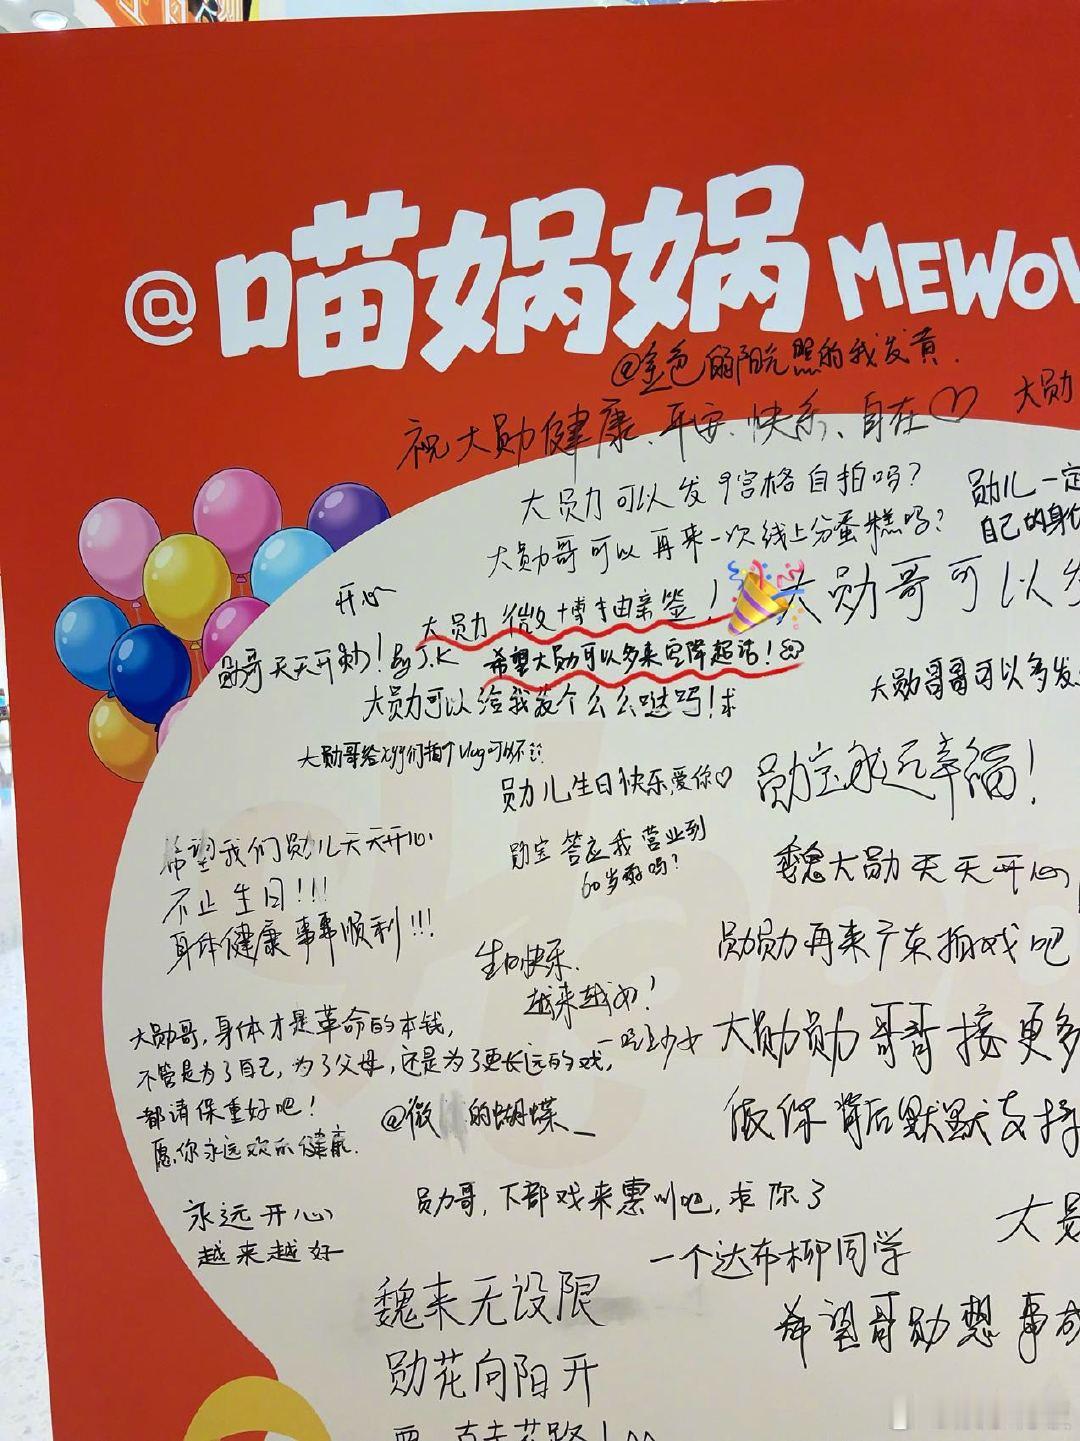 @喵娲娲 MEWOW
@金色的阳光照的我发黄.
祝大勋健康、平安、快乐、自在♡
大勋
大勋可以发9宫格自拍吗?
勋儿一定
自己的身体
大勋哥可以再来一次线上分蛋糕吗?
大勋哥可以发
开心~
大勋微博抽亲签!
勋哥天天开勋! By J.K
希望大勋可以多来空降超话!
大勋可以给我发个么么哒吗!求
大勋哥哥可以多发
大勋哥给人们们拍个vlog可以不
勋儿生日快乐,爱你♡
勋宝永远幸福!
希望我们勋儿天天开心
不止生日!!!
身体健康事事顺利!!!
勋宝答应我营业到
60岁好吗?
魏大勋天天开心
勋勋再来广东拍戏吧
生日快乐.
越来越好!
大勋勋哥哥接更多
做你背后默默支持
大勋哥,身体才是革命的本钱,
不管是为了自己,为了父母,还是为了更长远的戏,
都请保重好吧!
愿你永远欢乐健康.
@微 的蝴蝶_
勋哥,下部戏来惠州吧,求你了
一个达布柳同学
大勋
永远开心
越来越好
希望哥勋想事成
魏来无设限
勋花向阳开